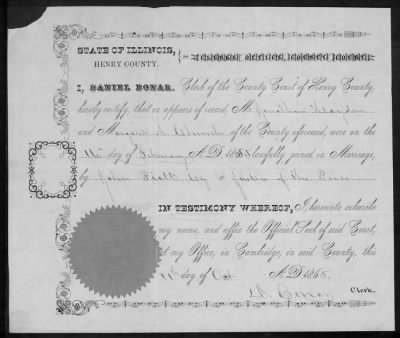 STATE OF ILLINOIS,
HENRY COUNTY.
I, DANIEL BONAR, Clerk of the County Court of Henry County,
hereby certify, that as appears of record, M Jonathan
and Margaret of the County aforesaid, were on the
11th day of February A. D. 1858 lawfully joined in Marriage,
by John Piatt Esq a Justice of the Peace
IN TESTIMONY WHEREOF, I, hereunto subscribe
my name, and affix the Official Seal of said Court,
at my Office, in Cambridge, in said County, this
day of Oct A. D. 1868.
Bonar
Clerk.